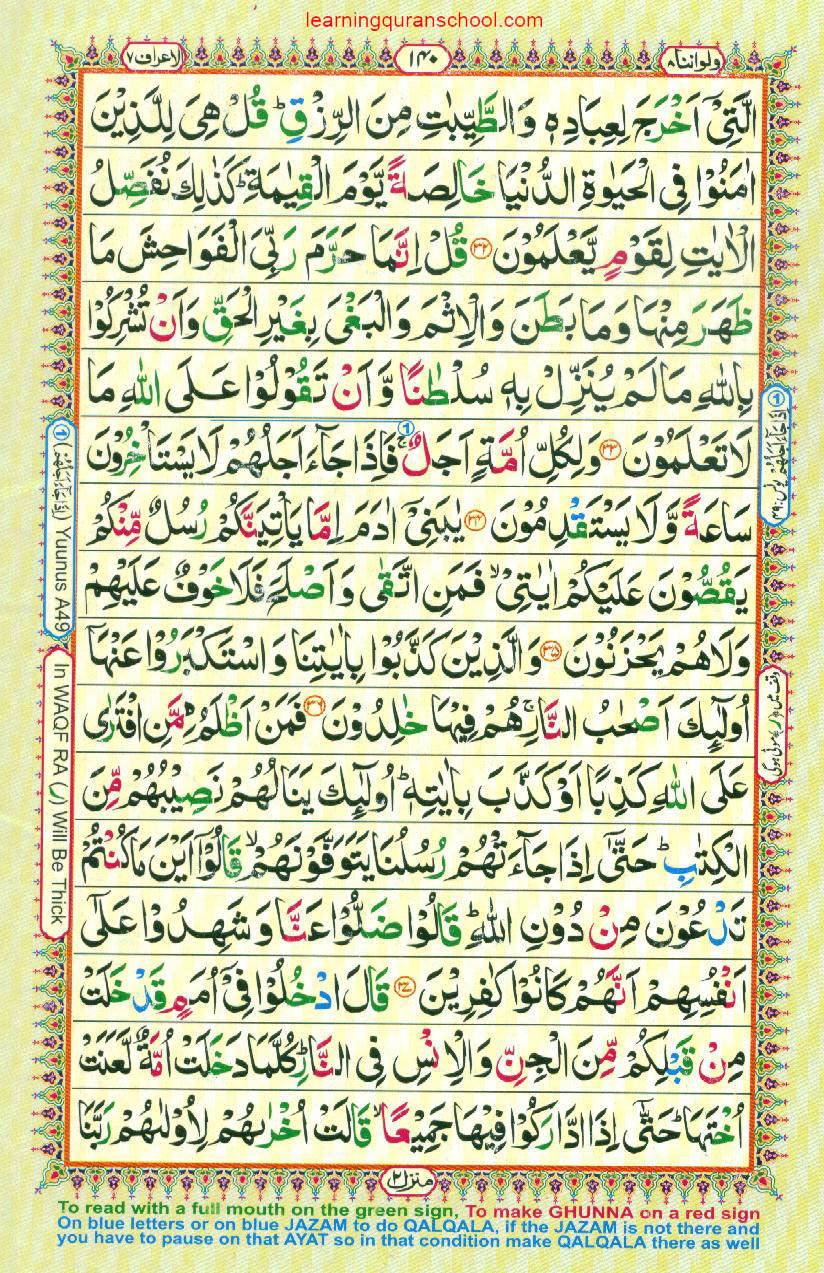 learningquranschool.com
ولواننا۸
۱۴۰
الاعراف۷
الَّتِىْۤ اَخْرَجَ لِعِبَادِهٖ وَالطَّيِّبٰتِ مِنَ الرِّزْقِؕ قُلْ هِىَ لِلَّذِيْنَ
اٰمَنُوْا فِى الْحَيٰوةِ الدُّنْيَا خَالِصَةً يَّوْمَ الْقِيٰمَةِؕ كَذٰلِكَ نُفَصِّلُ
الْاٰيٰتِ لِقَوْمٍ يَّعْلَمُوْنَ ۳۲ قُلْ اِنَّمَا حَرَّمَ رَبِّىَ الْفَوَاحِشَ مَا
ظَهَرَ مِنْهَا وَمَا بَطَنَ وَالْاِثْمَ وَالْبَغْىَ بِغَيْرِ الْحَقِّ وَاَنْ تُشْرِكُوْا
بِاللّٰهِ مَا لَمْ يُنَزِّلْ بِهٖ سُلْطٰنًا وَّاَنْ تَقُوْلُوْا عَلَى اللّٰهِ مَا
لَا تَعْلَمُوْنَ ۳۳ وَلِكُلِّ اُمَّةٍ اَجَلٌۚ فَاِذَا جَآءَ اَجَلُهُمْ لَا يَسْتَاْخِرُوْنَ
سَاعَةً وَّلَا يَسْتَقْدِمُوْنَ ۳۴ يٰبَنِىْۤ اٰدَمَ اِمَّا يَاْتِيَنَّكُمْ رُسُلٌ مِّنْكُمْ
يَقُصُّوْنَ عَلَيْكُمْ اٰيٰتِىْۙ فَمَنِ اتَّقٰى وَاَصْلَحَ فَلَا خَوْفٌ عَلَيْهِمْ
وَلَا هُمْ يَحْزَنُوْنَ ۳۵ وَالَّذِيْنَ كَذَّبُوْا بِاٰيٰتِنَا وَاسْتَكْبَرُوْا عَنْهَاۤ
اُولٰٓئِكَ اَصْحٰبُ النَّارِۚ هُمْ فِيْهَا خٰلِدُوْنَ ۳۶ فَمَنْ اَظْلَمُ مِمَّنِ افْتَرٰى
عَلَى اللّٰهِ كَذِبًا اَوْ كَذَّبَ بِاٰيٰتِهٖؕ اُولٰٓئِكَ يَنَالُهُمْ نَصِيْبُهُمْ مِّنَ
الْكِتٰبِؕ حَتّٰٓى اِذَا جَآءَتْهُمْ رُسُلُنَا يَتَوَفَّوْنَهُمْۙ قَالُوْۤا اَيْنَ مَا كُنْتُمْ
تَدْعُوْنَ مِنْ دُوْنِ اللّٰهِؕ قَالُوْا ضَلُّوْا عَنَّا وَشَهِدُوْا عَلٰٓى
اَنْفُسِهِمْ اَنَّهُمْ كَانُوْا كٰفِرِيْنَ ۳۷ قَالَ ادْخُلُوْا فِىْۤ اُمَمٍ قَدْ خَلَتْ
مِنْ قَبْلِكُمْ مِّنَ الْجِنِّ وَالْاِنْسِ فِى النَّارِؕ كُلَّمَا دَخَلَتْ اُمَّةٌ لَّعَنَتْ
اُخْتَهَاؕ حَتّٰٓى اِذَا ادَّارَكُوْا فِيْهَا جَمِيْعًاۙ قَالَتْ اُخْرٰىهُمْ لِاُوْلٰىهُمْ رَبَّنَا
منزل۲
① اِذَا جَآءَ اَجَلُهُمْ يونس: ۴۹
① (اِذَا جَآءَ اَجَلُهُمْ) Yuunus A49
In WAQF RA (ر) Will Be Thick
To read with a full mouth on the green sign, To make GHUNNA on a red sign
On blue letters or on blue JAZAM to do QALQALA, if the JAZAM is not there and
you have to pause on that AYAT so in that condition make QALQALA there as well